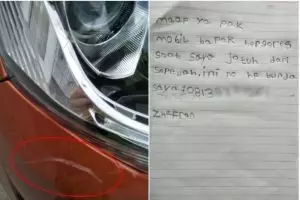 maap ya pak
mobil bapak kegores
saat saya jatuh dari
sepedah, ini no hp bunda
saya :0813
Zhafran